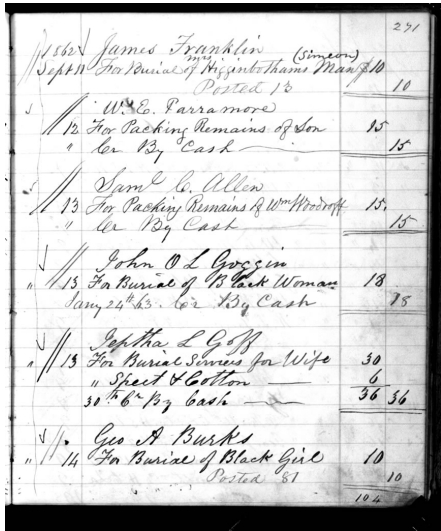 291
1862 James Franklin
Sept 11 For Burial of Mrs Higginbothams Man (Simeon) $10
Posted 13 10
W. E. Parramore
12 For Packing Remains of Son 15
" Cr By Cash 15
Saml C. Allen
13 For Packing Remains of Wm Woodroff 15.
" Cr By Cash 15
John O L Goggin
" 13 For Burial of Black Woman 18
Jany 24th 63. Cr By Cash 18
Jeptha L Goff
" 13 For Burial Services for Wife 30
" Speet & Cotton 6
30th Cr By Cash 36 36
Geo A Burks
" 14 For Burial of Black Girl 10
Posted 81 10
104